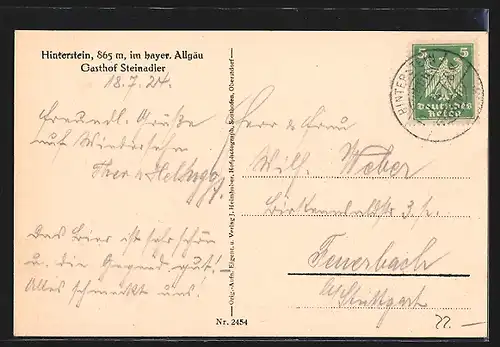 Hinterstein, 865 m, im bayer. Allgäu
Gasthof Steinadler
18.7.24.
Freundl. Grüße
auf Wiedersehn
Das Bier ist sehr schön
u. die Gegend gut! –
Alles schmeckt uns!
Orig.-Aufn. Eigent. u. Verlag J. Heimhuber, Hofphotograph, Sonthofen, Oberstdorf
Nr. 2454
5 5
Deutsches
Reich
HINTERS
Herr & Frau
Wilh. Weber
3 I.
Feuerbach
b/Stuttgart
22.–